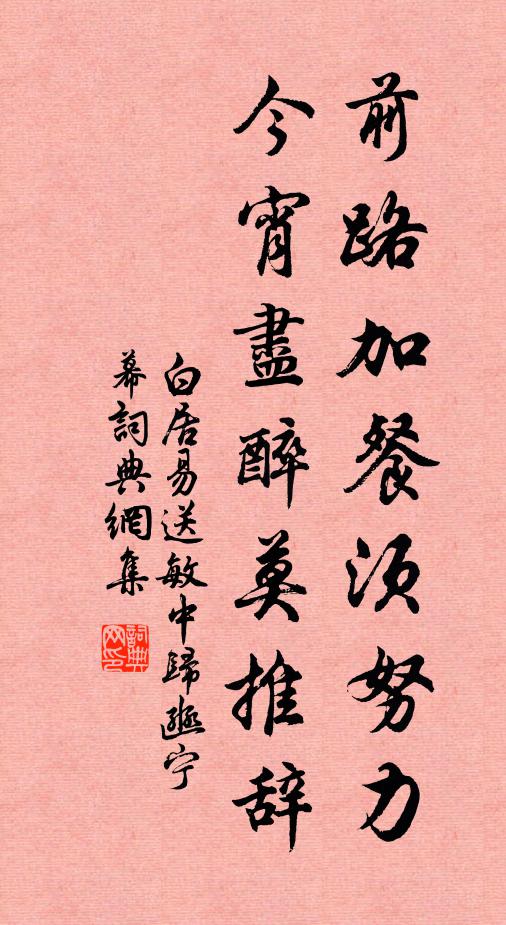 前路加餐须努力
今宵盡醉莫推辞
白居易送敏中歸豳宁
幕詞典網集
詞典网印